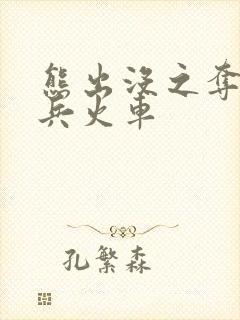 熊出没之夺
兵火車
孔繁森